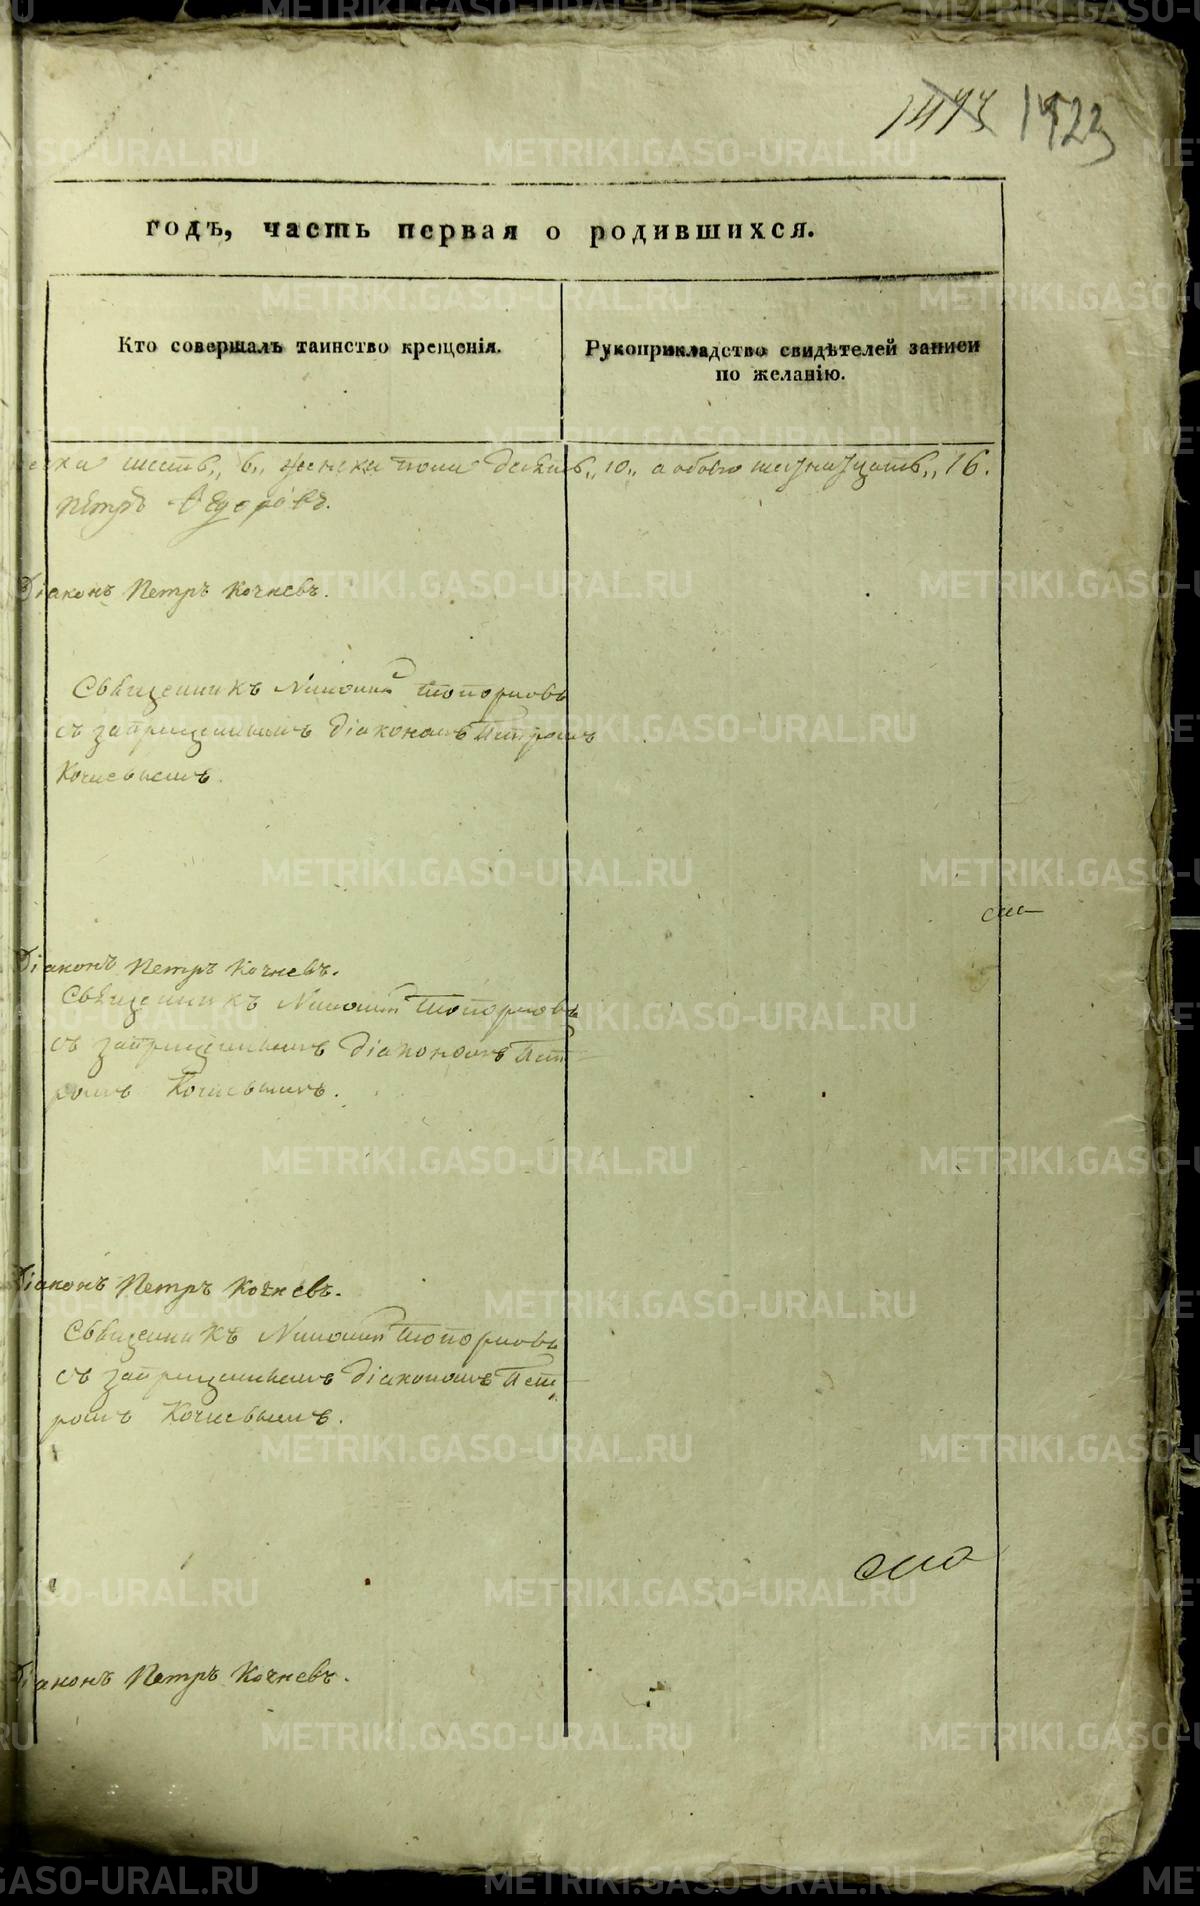 1423
годъ, часть первая о родившихся.
Кто совершалъ таинство крещенія.
Рукоприкладство свидѣтелей записи
по желанію.
шесть „6„ женска пола десять „10„ а обоего шеснатцать „16.
Петръ Ѳедоровъ.
Діаконъ Петръ Кочневъ.
Священникъ Топорковъ
съ запрещеннымъ діакономъ Петромъ
Кочневымъ.
Діаконъ Петръ Кочневъ.
Священникъ Топорковъ
съ запрещеннымъ діакономъ Пет
ромъ Кочневымъ.
Діаконъ Петръ Кочневъ.
Священникъ Топорковъ
съ запрещеннымъ діакономъ Пет
ромъ Кочневымъ.
Діаконъ Петръ Кочневъ.
METRIKI.GASO-URAL.RU